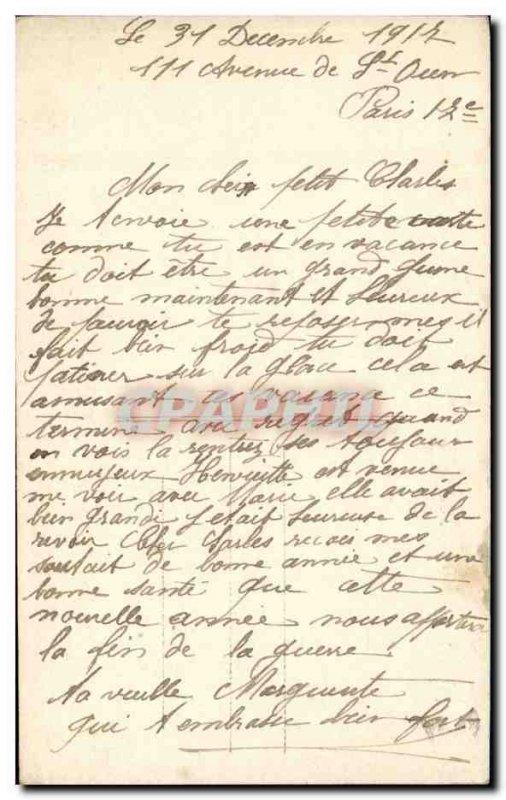 Le 31 Decembre 1917
111 Avenue de St Ouen
Paris 17e
Mon cher petit Charles
Je tenvoie une petite carte
comme tu est en vacance
tu doit être un grand jeune
homme maintenant et heureux
de pouvoir te reposer mes il
fait bien froid tu doit
patiner sur la glace cela est
amusant ces vacance ce
termine avec regret quand
on vois la rentrez ses toujour
ennuyeux Henriette est venue
me voir avec Marie elle avait
bien grandi jetait heureuse de la
revoir Cher Charles recois mes
souhait de bonne année et une
bonne santé que cette
nouvelle année nous apportera
la fin de la guerre
Ta vieille Marguerite
qui tembrasse bien fort
CPAPHIL